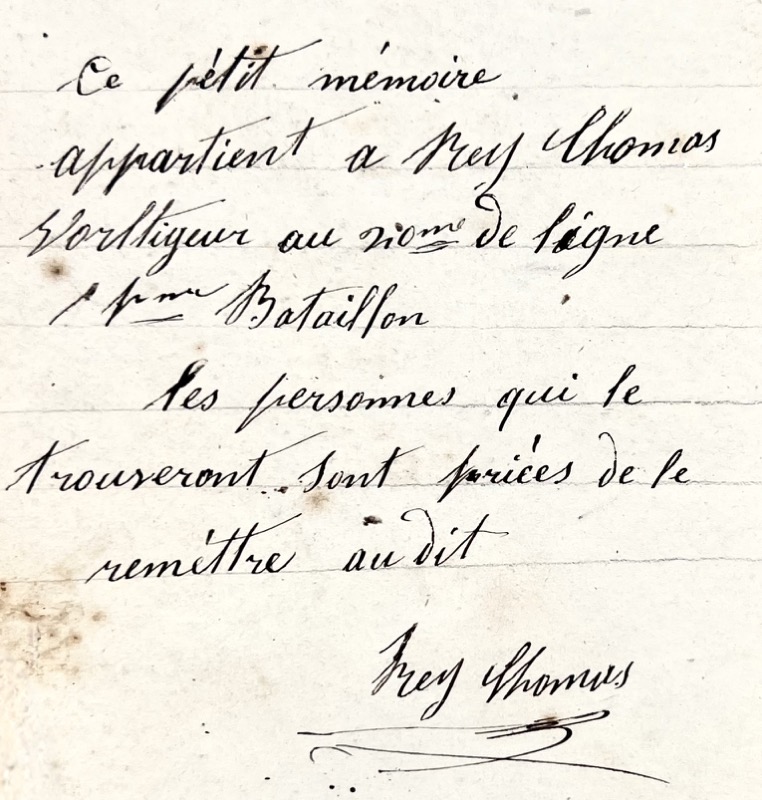 Ce pétit mémoire
appartient a Rey Thomas
Vorltigeur au 21ome de légne
1 pme Bataillon
les personnes qui le
trouveront sont priées de le
reméttre au dit
Rey Thomas